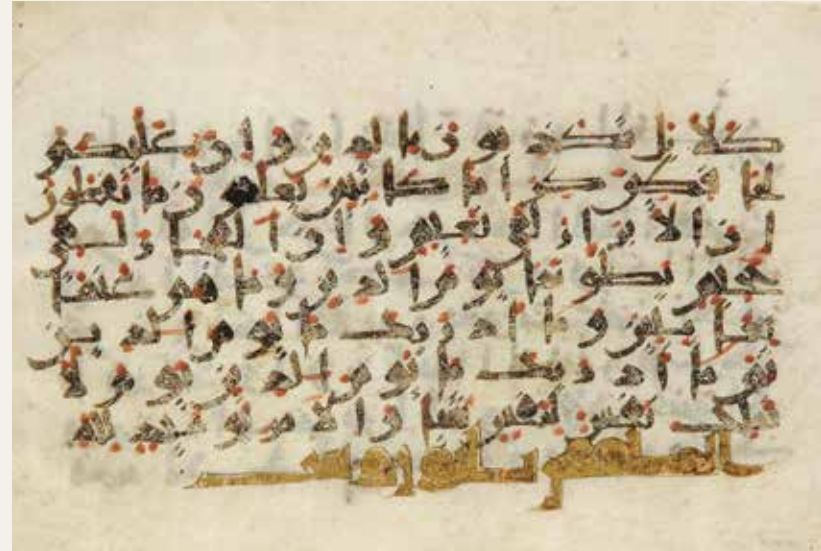 كلا بل تكذبون بالدين وان عليكم
لحفظين كراما كاتبين يعلمون ما تفعلون
ان الابرار لفي نعيم وان الفجار لفي
جحيم يصلونها يوم الدين وما هم عنها
بغائبين وما ادريك ما يوم الدين
ثم ما ادريك ما يوم الدين يوم لا
تملك نفس لنفس شيئا والامر يومئذ لله
المطففين ثلثون وست